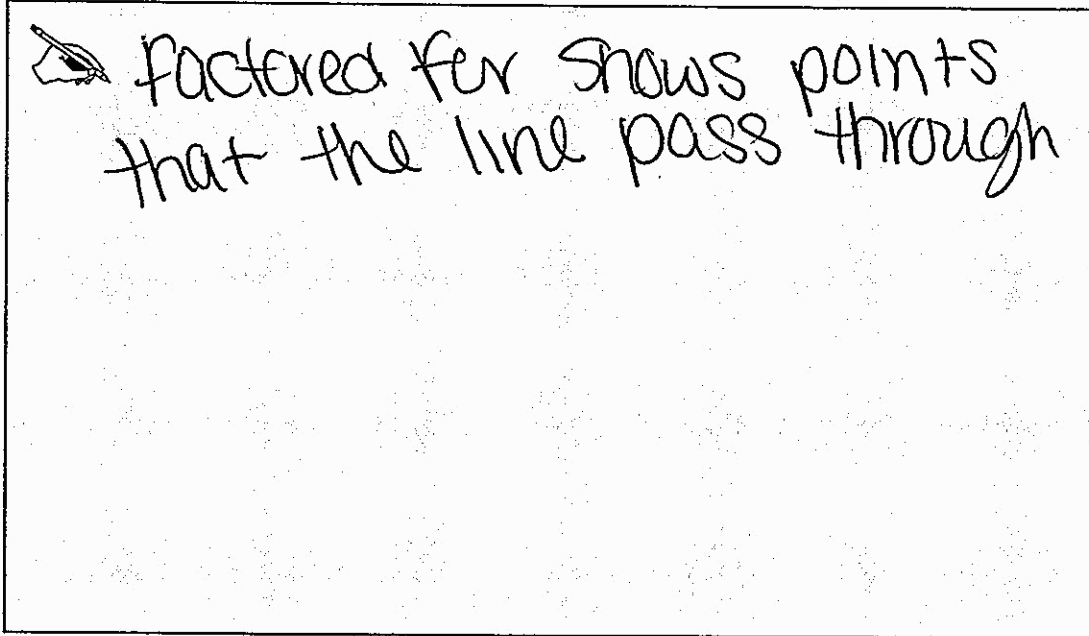 factored for shows points
that the line pass through